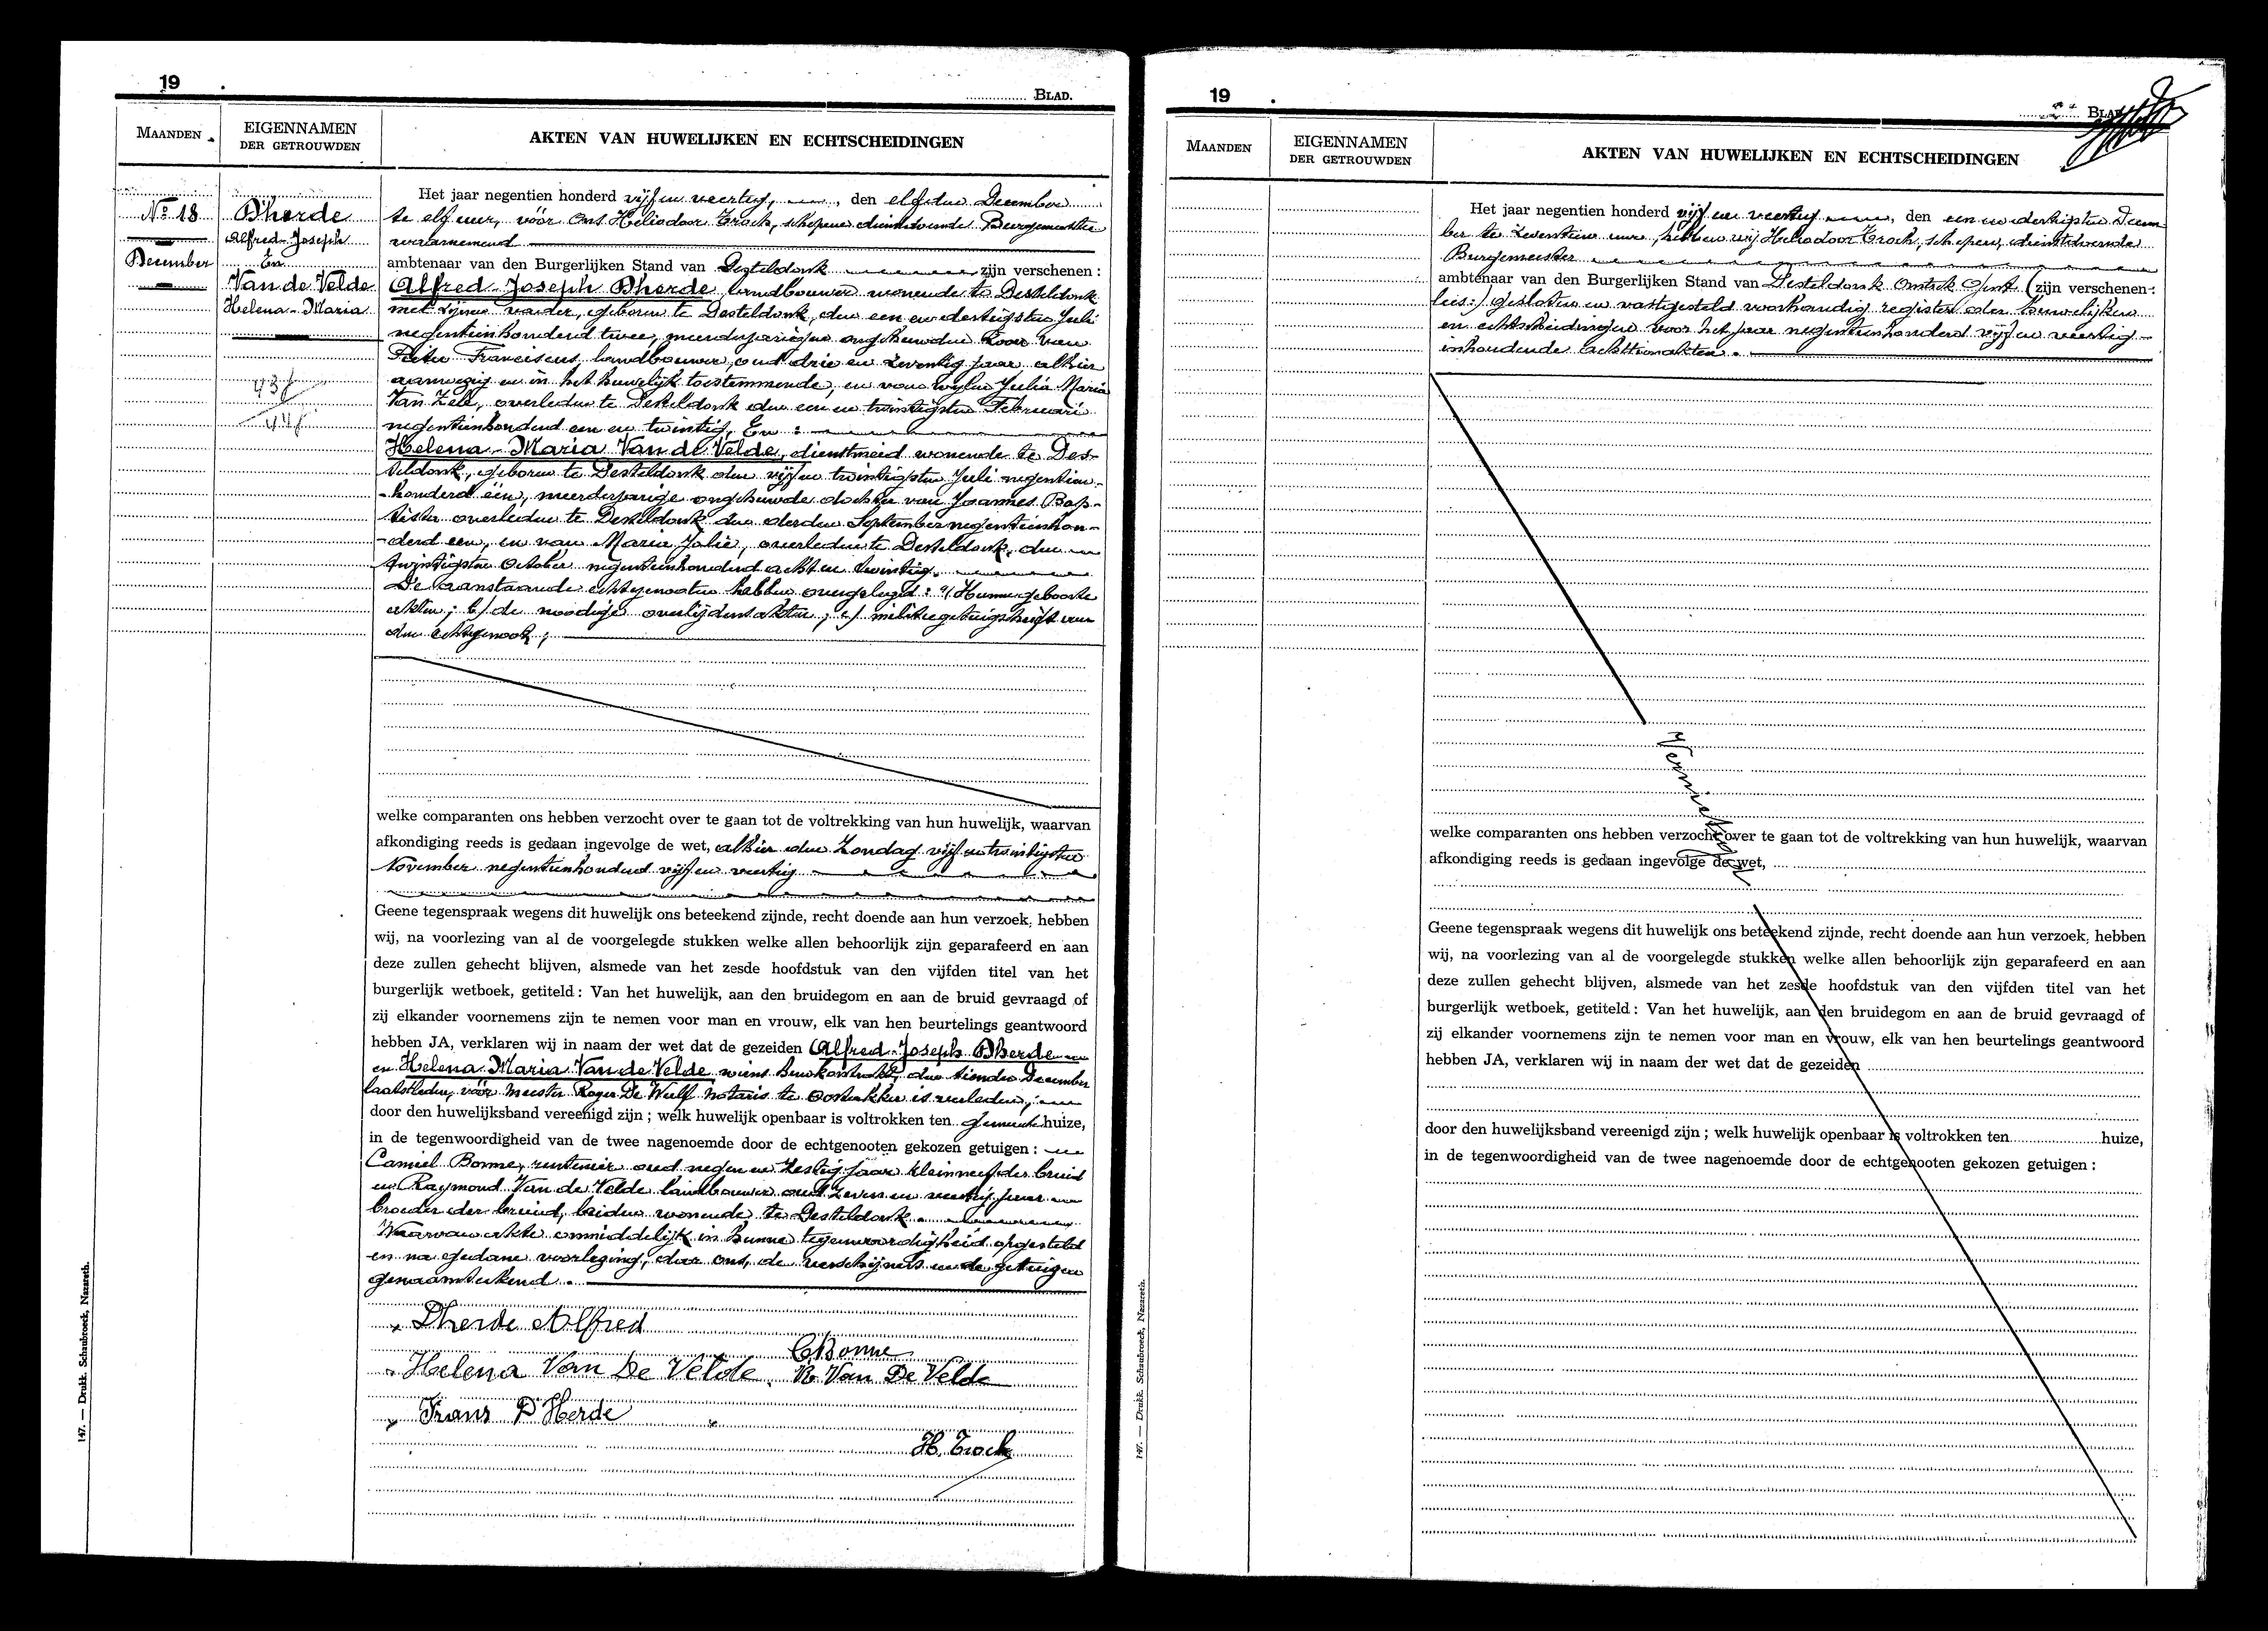 19
BLAD.
MAANDEN
EIGENNAMEN
DER GETROUWDEN
AKTEN VAN HUWELIJKEN EN ECHTSCHEIDINGEN
No 18
December
Dherde
Alfred-Joseph
En
Van de Velde
Helena-Maria
Het jaar negentien honderd vijf en veertig, den elfden December
te elf uur, vóór Ons Heliodoor Troch, schepene dienstdoende Burgemeester
waarnemend
ambtenaar van den Burgerlijken Stand van Desteldonk zijn verschenen :
Alfred Joseph Dherde landbouwer wonende te Desteldonk
met zijnen vader, geboren te Desteldonk, den een en dertigsten Juli
negentienhonderd twee, meerderjarigen ongehuwden zoon van
Pieter Franciscus landbouwer, oud drie en zeventig jaar, alhier
aanwezig en in het huwelijk toestemmende, en van wijlen Julia Maria
Van Zele, overleden te Desteldonk den een en twintigsten Februari
negentienhonderd een en twintig, En :
Helena-Maria Van de Velde, dienstmeid wonende te Des-
teldonk, geboren te Desteldonk den vijf en twintigsten Juli negentien-
-honderd één, meerderjarige ongehuwde dochter van Joannes Bap-
tista overleden te Desteldonk den derden September negentienhon-
-derd een, en van Maria Jolie, overleden te Desteldonk, den
twintigsten October negentienhonderd acht en twintig.
De aanstaande echtgenooten hebben overgelegd : a/ Hunne geboorte
akten ; b/ de noodige overlijdensakten ; c/ militiegetuigschrift van
den echtgenoot ;
welke comparanten ons hebben verzocht over te gaan tot de voltrekking van hun huwelijk, waarvan
afkondiging reeds is gedaan ingevolge de wet, alhier den Zondag vijf en twintigsten
November negentienhonderd vijf en veertig
Geene tegenspraak wegens dit huwelijk ons beteekend zijnde, recht doende aan hun verzoek, hebben
wij, na voorlezing van al de voorgelegde stukken welke allen behoorlijk zijn geparafeerd en aan
deze zullen gehecht blijven, alsmede van het zesde hoofdstuk van den vijfden titel van het
burgerlijk wetboek, getiteld : Van het huwelijk, aan den bruidegom en aan de bruid gevraagd of
zij elkander voornemens zijn te nemen voor man en vrouw, elk van hen beurtelings geantwoord
hebben JA, verklaren wij in naam der wet dat de gezeiden Alfred-Joseph Dherde
en Helena Maria Van de Velde wiens huwkontrakt, den tienden December
laatstleden, vóór meester Roger De Wulf notaris te Oostakker is verleden,
door den huwelijksband vereenigd zijn ; welk huwelijk openbaar is voltrokken ten gemeentehuize,
in de tegenwoordigheid van de twee nagenoemde door de echtgenooten gekozen getuigen :
Camiel Bonne, rentenier oud negen en zestig jaar kleinneef der bruid
en Raymond Van de Velde landbouwer oud zeven en veertig jaar
broeder der bruid, beiden wonende te Desteldonk.
Waarvan akte onmiddelijk in hunne tegenwoordigheid opgesteld
en na gedane voorlezing, door ons, de verschijners en de getuigen
genaamteekend.
Dherde Alfred
CBonne
Helena Van De Velde
R. Van De Velde
Frans D'Herde
H. Troch
147. — Drukk. Schaubroeck, Nazareth.
19
BLAD
MAANDEN
EIGENNAMEN
DER GETROUWDEN
AKTEN VAN HUWELIJKEN EN ECHTSCHEIDINGEN
Het jaar negentien honderd vijf en veertig, den een en dertigsten Decem
ber te zeventien uur, hebben wij Heliodoor Troch, schepen, dienstdoende
Burgemeester
ambtenaar van den Burgerlijken Stand van Desteldonk Omtrek Gent (zijn verschenen :
lees:) gesloten en vastgesteld voorhandig register der huwelijken
en echtscheidingen voor het jaar negentienhonderd vijf en veertig
inhoudende achttien akten.
Vernietigd
welke comparanten ons hebben verzocht over te gaan tot de voltrekking van hun huwelijk, waarvan
afkondiging reeds is gedaan ingevolge de wet,
Geene tegenspraak wegens dit huwelijk ons beteekend zijnde, recht doende aan hun verzoek, hebben
wij, na voorlezing van al de voorgelegde stukken welke allen behoorlijk zijn geparafeerd en aan
deze zullen gehecht blijven, alsmede van het zesde hoofdstuk van den vijfden titel van het
burgerlijk wetboek, getiteld : Van het huwelijk, aan den bruidegom en aan de bruid gevraagd of
zij elkander voornemens zijn te nemen voor man en vrouw, elk van hen beurtelings geantwoord
hebben JA, verklaren wij in naam der wet dat de gezeiden
door den huwelijksband vereenigd zijn ; welk huwelijk openbaar is voltrokken ten huize,
in de tegenwoordigheid van de twee nagenoemde door de echtgenooten gekozen getuigen :
147. — Drukk. Schaubroeck, Nazareth.